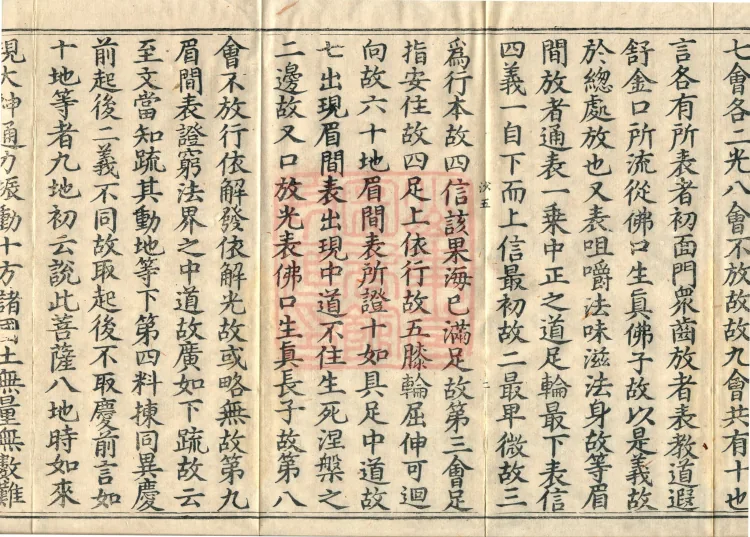 七會各二光八會會不放故故九會共有十也
言各有所表者初面門衆齒放者表教道遐
舒金口所流從佛口生真佛子故以是義故
於總處放也又表咀嚼法味滋法身故等眉
間放者通表一乗中正之道足輪最下表信
四義一自下而上信最初故二最早微故三
爲行本故四信該果海已滿足故第三會足
指安住故四足上依行故五膝輪屈伸可迴
向故六十地眉間表所證十如具足中道故
七出現眉間表出現中道不住生死涅槃之
二邊故又口放光表佛口生真長子故第八
會不放行依解發依解光故或略無故第九
眉間表證窮法界之中道故廣如下疏故云
至文當知疏其動地等下第四料揀同異慶
前起後二義不同故取起後不取慶前言如
十地等者九地初云說此菩薩八地時如來
現大神通力振動十方諸国土無量無數難